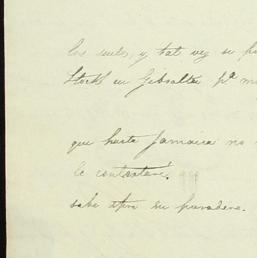 los suelos, y tal vez se
Stock en Gibraltar pa
que hasta Jamaica no
le contestaré.
sabe su paradero.